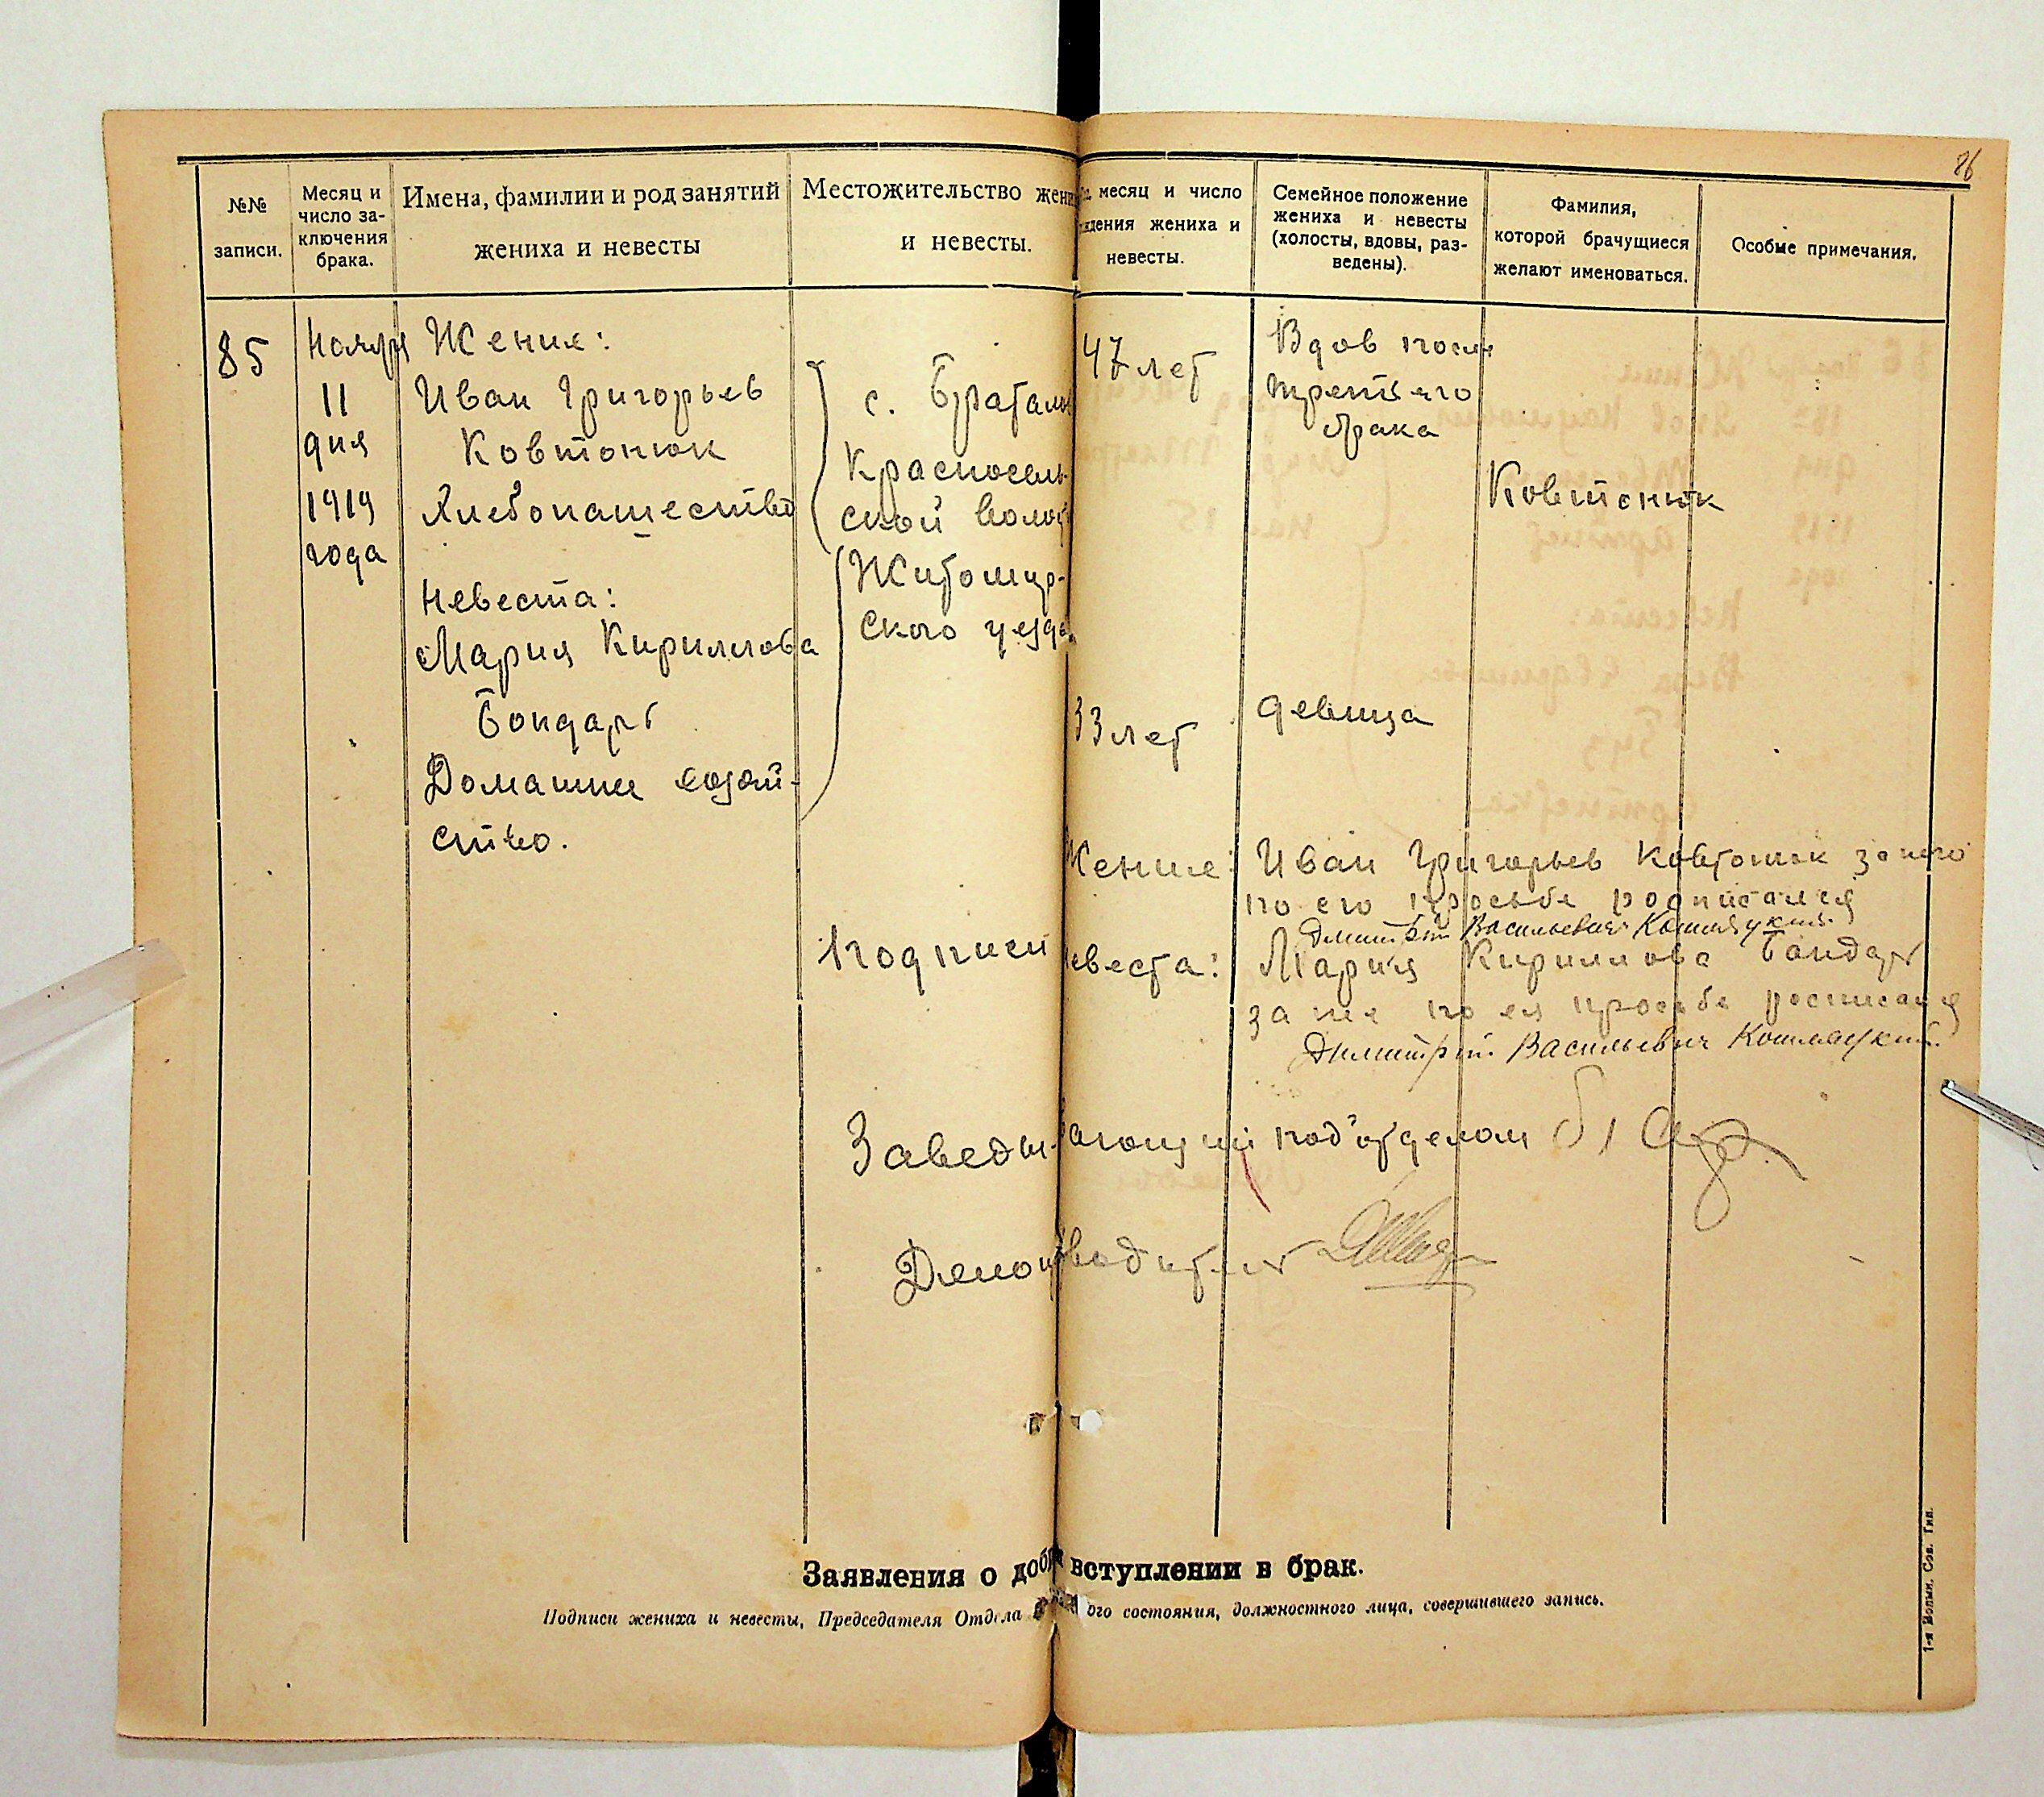 86
№№ записи.
Месяц и число за-ключения брака.
Имена, фамилии и род занятий жениха и невесты
Местожительство жени
и невесты.
месяц и число
ждения жениха и
невесты.
Семейное положение жениха и невесты (холосты, вдовы, раз-ведены).
Фамилия, которой брачущиеся желают именоваться.
Особые примечания.
85
Ноября
11
дня
1919
года
Жених:
Иван Григорьев
Ковтонюк
Хлебопашество
Невеста:
Мария Кириллова
Бондарь
Домашнее хозяй-
ство.
с. Братал
Красносель-
ской волос
Житомир-
ского уезда
47 лет
33 лет
Вдов после
третьего
брака
девица
Ковтонюк
Подписи
Жених: Иван Григорьев Ковтонюк за него
по его просьбе росписался
Дмитрий Васильевич
Невеста: Мария Кириллова Бондарь
за нее по ея просьбе росписался
Димитрий Васильевич
Заведывающий под'отделом
Делопроизводитель
Заявления о доб вступлении в брак.
Подписи жениха и невесты, Председателя Отдела ого состояния, должностного лица, совершившего запись.
1-я Волын. Сов. Тип.